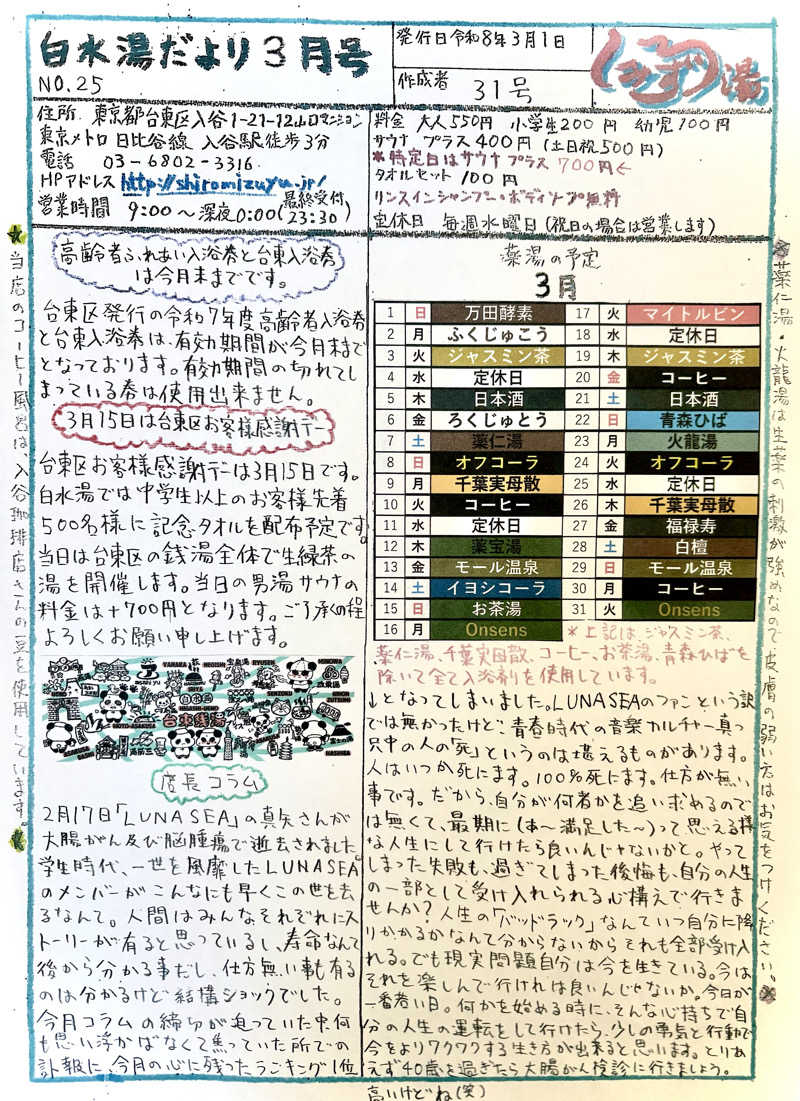 白水湯だより3月号
NO.25
発行日令和8年3月1日
作成者 31号
湯
住所 東京都台東区入谷1-21-12山口マンション
東京メトロ 日比谷線 入谷駅徒歩3分
電話 03-6802-3316
HPアドレス http://shiromizuyu.jp/
営業時間 9:00～深夜0:00(最終受付23:30)
料金 大人550円 小学生200円 幼児100円
サウナ プラス400円(土日祝500円)
*特定日はサウナプラス 700円←
タオルセット 100円
リンスインシャンプー・ボディソープ無料
定休日 毎週水曜日(祝日の場合は営業します)
★当店のコーヒー風呂は、入谷珈琲店さんの豆を使用しています。★
高齢者ふれあい入浴券と台東入浴券
は今月末までです。
台東区発行の令和7年度高齢者入浴券
と台東入浴券は、有効期間が今月末まで
となっております。有効期間の切れてし
まっている券は使用出来ません。
3月15日は台東区お客様感謝デー
台東区お客様感謝デーは3月15日です。
白水湯では中学生以上のお客様先着
500名様に記念タオルを配布予定です。
当日は台東区の銭湯全体で生緑茶の
湯を開催します。当日の男湯サウナの
料金は+700円となります。ご了承の程
よろしくお願い申し上げます。
台東銭湯
店長コラム
2月17日「LUNA SEA」の真矢さんが
大腸がん及び脳腫瘍で逝去されました。
学生時代、一世を風靡したLUNASEA
のメンバーがこんなにも早くこの世を去
るなんて。人間はみんなそれぞれにス
トーリーが有ると思っているし、寿命なんて
後から分かる事だし、仕方無い事も有る
のは分かるけど結構ショックでした。
今月コラムの締切が迫っていた中、何
も思い浮かばなくて焦っていた所での
訃報に、今月の心に残ったランキング1位
薬湯の予定
3月
1 日 万田酵素
2 月 ふくじゅこう
3 火 ジャスミン茶
4 水 定休日
5 木 日本酒
6 金 ろくじゅとう
7 土 薬仁湯
8 日 オフコーラ
9 月 千葉実母散
10 火 コーヒー
11 水 定休日
12 木 薬宝湯
13 金 モール温泉
14 土 イヨシコーラ
15 日 お茶湯
16 月 Onsens
17 火 マイトルビン
18 水 定休日
19 木 ジャスミン茶
20 金 コーヒー
21 土 日本酒
22 日 青森ひば
23 月 火龍湯
24 火 オフコーラ
25 水 定休日
26 木 千葉実母散
27 金 福禄寿
28 土 白檀
29 日 モール温泉
30 月 コーヒー
31 火 Onsens
*上記は、ジャスミン茶、
薬仁湯、千葉実母散、コーヒー、お茶湯、青森ひばを
除いて全て入浴剤を使用しています。
↓となってしまいました。LUNASEAのファンという訳
では無かったけど、青春時代の音楽カルチャー真っ
只中の人の「死」というのは堪えるものがあります。
人はいつか死にます。100%死にます。仕方が無い
事です。だから、自分が何者かを追い求めるので
は無くて、最期に(あ～満足した～)って思える様
な人生にして行けたら良いんじゃないかと。やって
しまった失敗も、過ぎてしまった後悔も、自分の人生
の一部として受け入れられる心構えで行きま
せんか?人生の「バッドラック」なんていつ自分に降
りかかるかなんて分からないからそれも全部受け入
れる。でも現実問題自分は今を生きている。今は
それを楽しんで行ければ良いんじゃないか。今日が
一番若い日。何かを始める時に、そんな心持ちで自
分の人生の運転をして行けたら、少しの勇気と行動で
今をよりワクワクする生き方が出来ると思います。とりあ
えず40歳を過ぎたら大腸がん検診に行きましょう。
高いけどね(笑)
※薬仁湯・火龍湯は生薬の刺激が強めなので皮膚の弱い方はお気をつけください。※